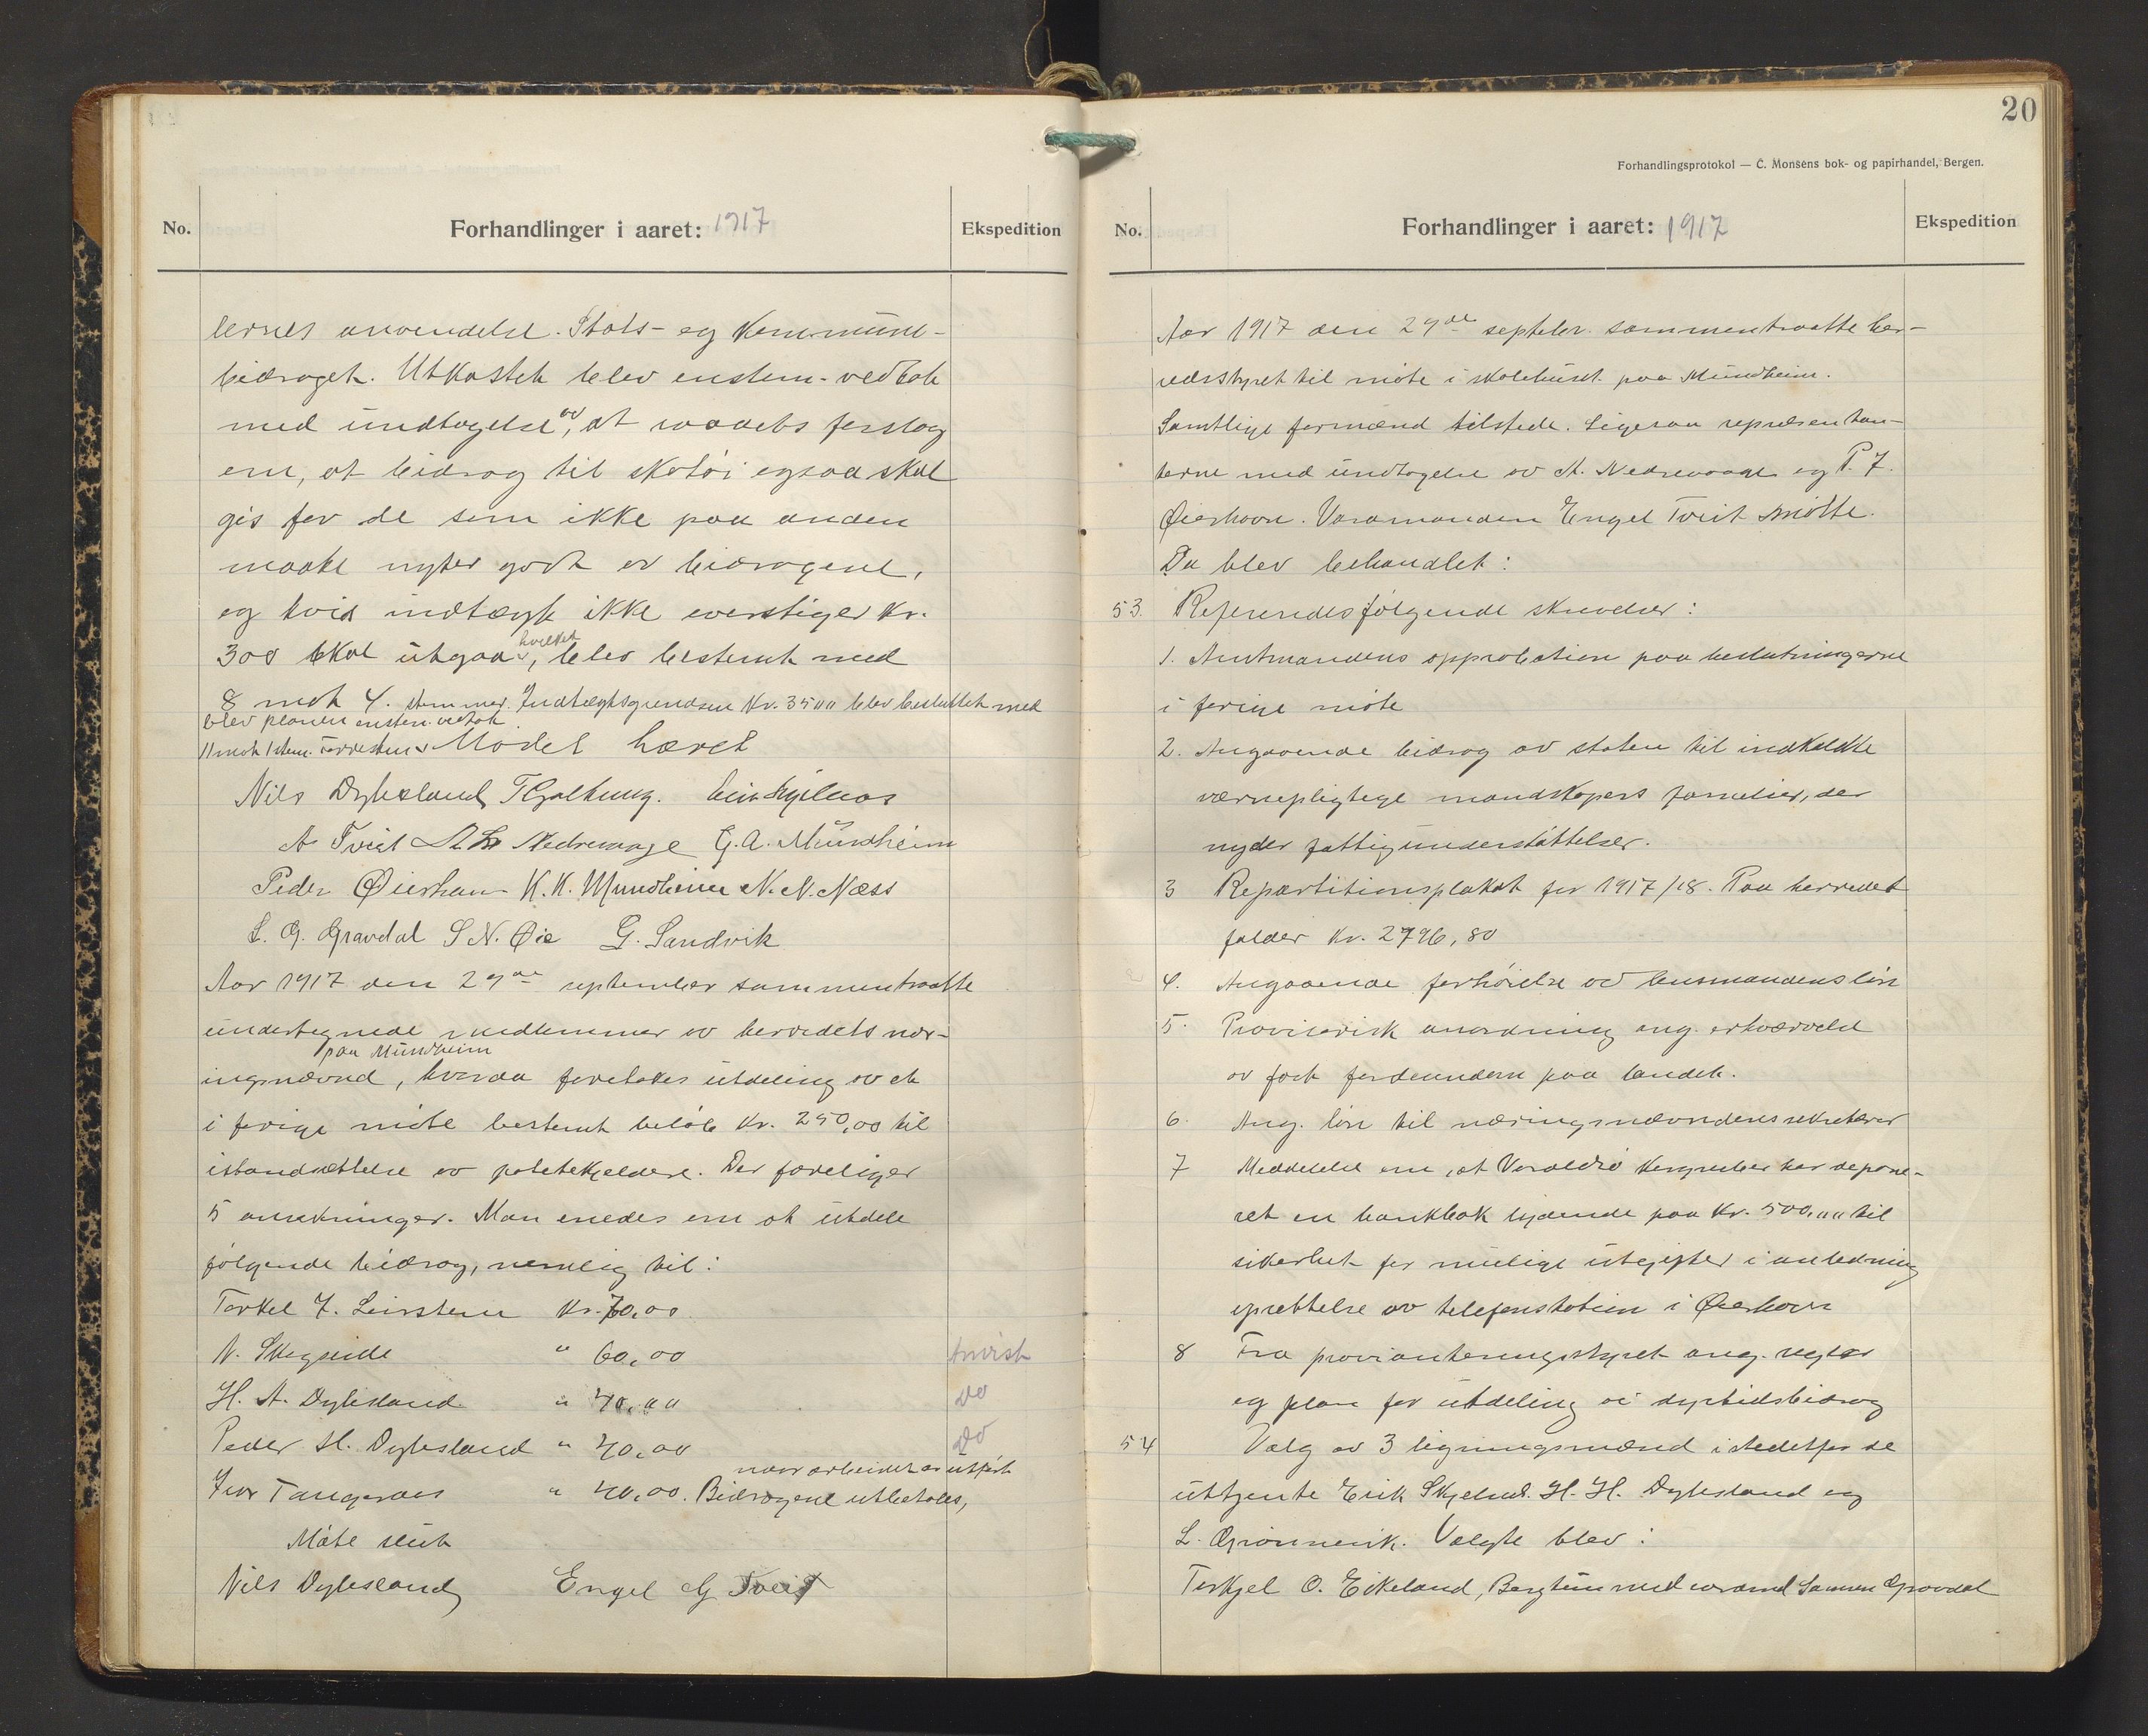 No.
Forhandlinger i aaret: 1917
Ekspedition
lernes anvendelse. Stats- og Kommune-
bidraget. Utkastet blev enstem. vedtat
med undtagelse av, at raadets forslag
om, at bidrag til skotöi ogsaa skal
gis for de som ikke paa anden
maate nyter godt av bidragene,
og hvis indtægt ikke overstiger Kr.
300 skal utgaa, hvilket blev bestemt med
8 mot 4. stemmer. Indtægtsgrændsen Kr. 3500 blev besluttet med
11 mot 1 stem. Forresten blev planen enstem. vedtat.
Mödet hævet
Nils Dybsland T Galtung. Eirik Skjelnes
A. Tveit Nedrevaage G. A. Mundheim
Peder Øierhavn K. K. Mundheim N. N. Næss
S. G. Gravdal S N. Øie G. Sandvik
Aar 1917 den 29de september sammentraatte
undertegnede medlemmer av herredets nær-
ingsnævnd paa Mundheim, hvorda foretokes utdeling av et
i forrige möte bestemt belöb Kr. 250,00 til
istandsættelse av potetkjeldere. Der foreligger
5 ansökninger. Man enedes om at utdele
fölgende bidrag, nemlig til:
Torkel J. Leirstein Kr. 70,00
N. Skogseide " 60,00 Anvist
H. A. Dybsland " 40,00 Do
Peder H. Dybsland " 40,00 Do
Ivar Tangeraas " 40,00. Bidragene utbetales,
naar arbeidet er utfört
Möte slut
Nils Dybsland Engel G Tveit
20
Forhandlingsprotokol — C. Monsens bok- og papirhandel, Bergen.
No.
Forhandlinger i aaret: 1917
Ekspedition
Aar 1917 den 29de septebr. sammentraatte her-
redsstyret til möte i skolehuset paa Mundheim.
Samtlige formænd tilstede. Ligesaa repræsentan-
terne med undtagelse av A. Nedrevaage og P. J.
Øierhavn. Varamanden Engel Tveit mötte.
Da blev behandlet:
53. Referertes fölgende skrivelser:
1. Amtmandens approbation paa beslutningerne
i forrige möte
2. Angaaende bidrag av staten til indkaldte
værnepligtige mandskapers familier, der
nyder fattigunderstöttelser.
3 Repartitionsplakat for 1917/18. Paa herredet
falder Kr. 2796,80
4. Angaaende forhöielse av lensmandens lön
5. Provisorisk anordning ang. erhvervelse
av fast eiendom paa landet.
6. Ang. lön til næringsnævndens sekretærer
7 Meddelelse om, at Varaldsö Kisgruber har depone-
ret en bankbok lydende paa Kr. 500,00 til
sikerhet for mulige utgifter i anledning
oprettelse av telefonstation i Øierhavn
8 Fra provianteringsstyret ang. regler
og plan for utdeling av dyrtidsbidrag
54 Valg av 3 ligningsmænd istedetfor de
uttjente Eirik Skjelnes. H. H. Dybsland og
L. Grönnevik. Valgte blev:
Terkjel O. Eikeland, Bergtun med varamd Samson Gravdal